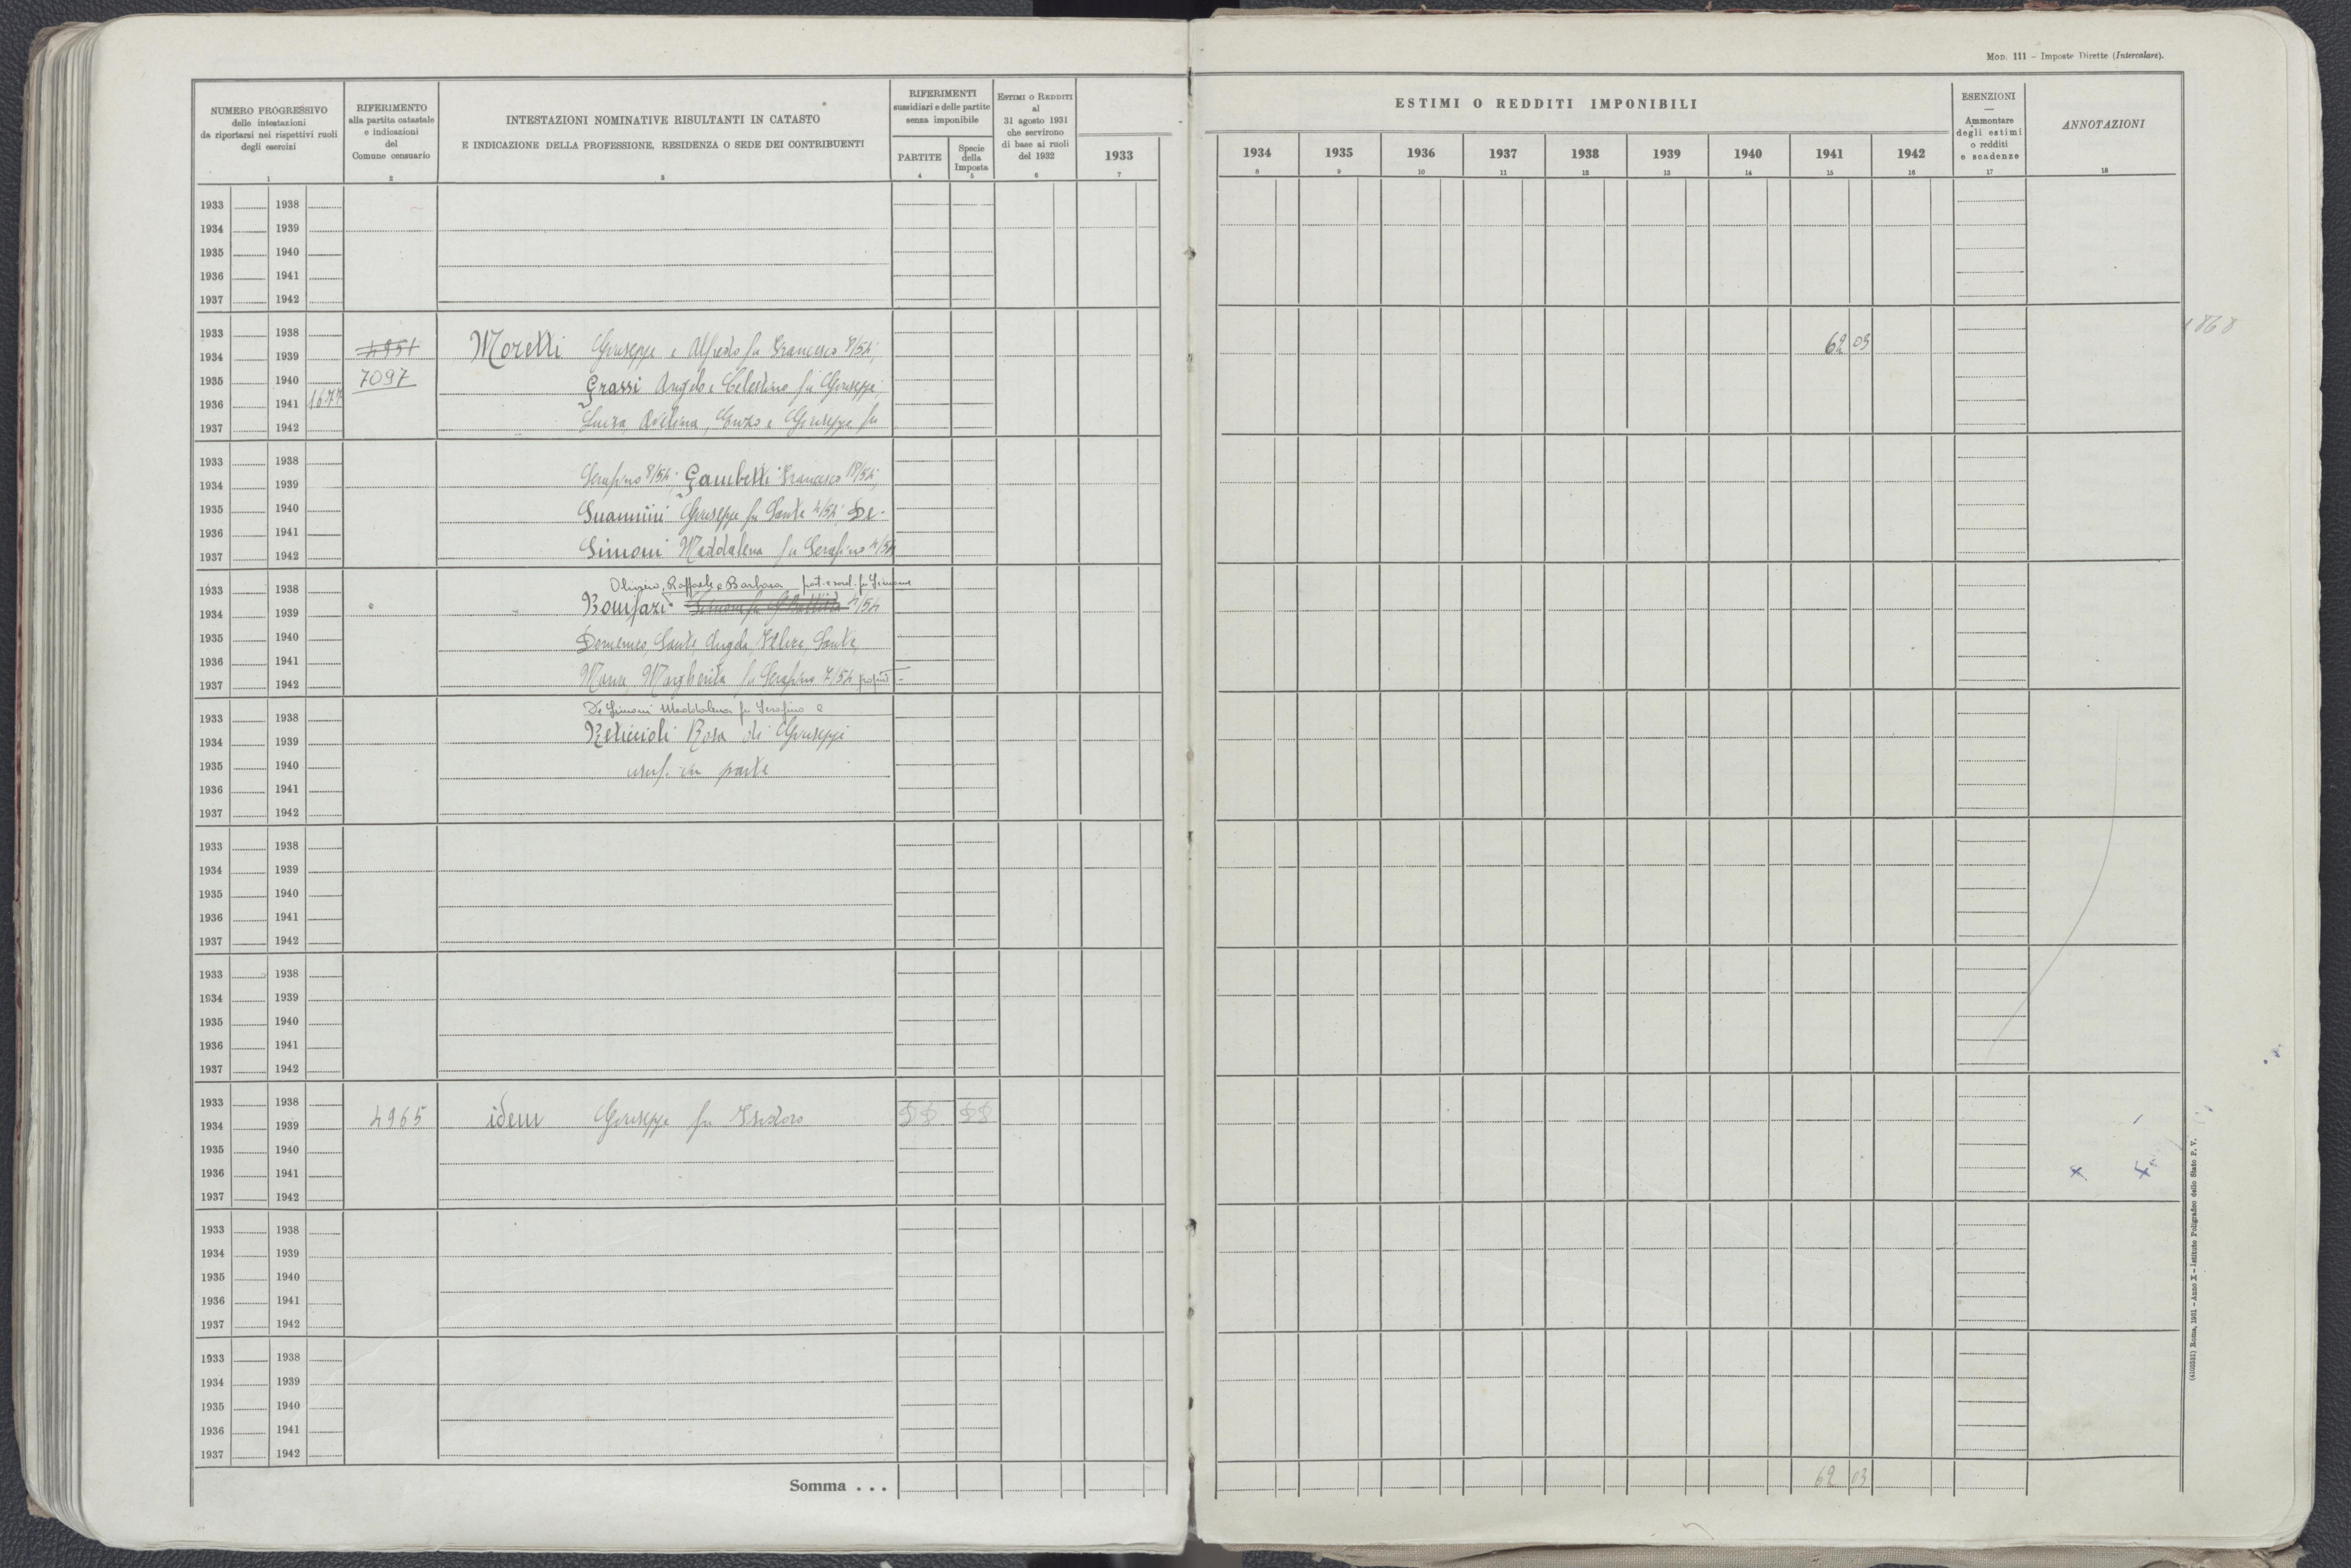 MOD. 111 – Imposte Dirette (Intercalare).
NUMERO PROGRESSIVO
delle intestazioni
da riportarsi nei rispettivi ruoli
degli esercizi
1
RIFERIMENTO
alla partita catastale
e indicazioni
del
Comune censuario
2
INTESTAZIONI NOMINATIVE RISULTANTI IN CATASTO
E INDICAZIONE DELLA PROFESSIONE, RESIDENZA O SEDE DEI CONTRIBUENTI
3
RIFERIMENTI
sussidiari e delle partite
senza imponibile
PARTITE
4
Specie
della
Imposta
5
ESTIMI O REDDITI
al
31 agosto 1931
che servirono
di base ai ruoli
del 1932
6
1933
7
ESTIMI O REDDITI IMPONIBILI
1934 1935 1936 1937 1938 1939 1940 1941 1942
8 9 10 11 12 13 14 15 16
ESENZIONI
—
Ammontare
degli estimi
o redditi
e scadenze
17
ANNOTAZIONI
18
1933 1938
1934 1939
1935 1940
1936 1941
1937 1942
1933 1938 1868
1934 1939 4951 Moretti Giuseppe e Alfredo fu Francesco 8/54; 62 03
1935 1940 7097 Grassi Angelo e Celestino fu Giuseppe;
1936 1941 1677
1937 1942 Luisa, Avelina, Enzo e Giuseppe fu
1933 1938
1934 1939 Serafino 8/54; Gambetti Francesco 18/54;
1935 1940 Giuseppe fu Sante 4/54; De-
1936 1941
1937 1942 Simoni Maddalena fu Serafino 4/54
1933 1938 Oliviero, Raffaele e Barbara fu Simone
1934 1939 Bonifazi 4/54
1935 1940 Domenico, Sante Angela, Sante,
1936 1941
1937 1942 Maria, Margherita fu Serafino 7/54
1933 1938 De Simoni Maddalena fu Serafino e
1934 1939 Rosa di Giuseppe
1935 1940 usuf. in parte
1936 1941
1937 1942
1933 1938
1934 1939
1935 1940
1936 1941
1937 1942
1933 1938
1934 1939
1935 1940
1936 1941
1937 1942
1933 1938
1934 1939 4965 idem Giuseppe fu Isidoro
1935 1940
1936 1941 x x
1937 1942
1933 1938
1934 1939
1935 1940
1936 1941
1937 1942
1933 1938
1934 1939
1935 1940
1936 1941
1937 1942
Somma . . . 62 03
Roma, 1931 – Anno X – Istituto Poligrafico dello Stato P. V.